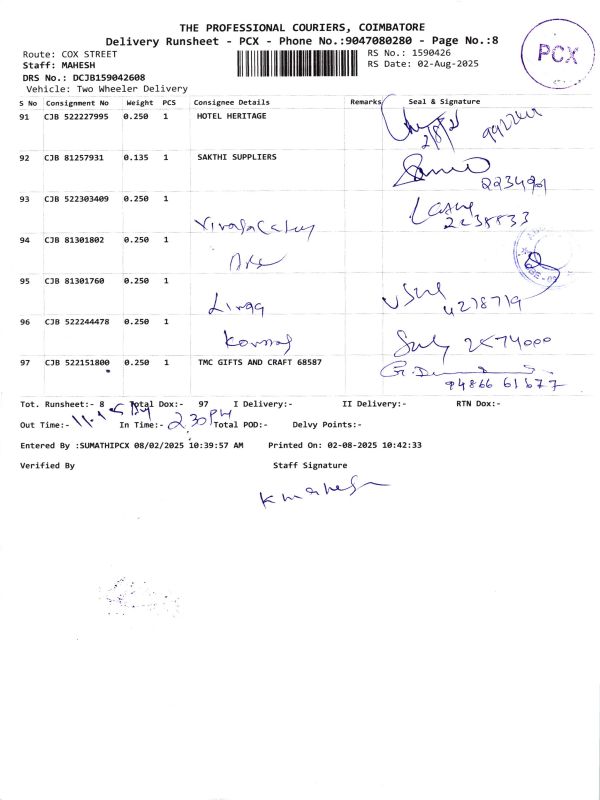 THE PROFESSIONAL COURIERS, COIMBATORE
Delivery Runsheet - PCX - Phone No.:9047080280 - Page No.:8
Route: COX STREET RS No.: 1590426
Staff: MAHESH RS Date: 02-Aug-2025
DRS No.: DCJB159042608
Vehicle: Two Wheeler Delivery
PCX
S No Consignment No Weight PCS Consignee Details Remarks Seal & Signature
91 CJB 522227995 0.250 1 HOTEL HERITAGE
2/8/25
92 CJB 81257931 0.135 1 SAKTHI SUPPLIERS
93 CJB 522303409 0.250 1
2238533
94 CJB 81301802 0.250 1
95 CJB 81301760 0.250 1
4278719
96 CJB 522244478 0.250 1
2474000
97 CJB 522151800 0.250 1 TMC GIFTS AND CRAFT 68587
94866 61677
Tot. Runsheet:- 8 Total Dox:- 97 I Delivery:- II Delivery:- RTN Dox:-
Out Time:- In Time:- 2.30PM Total POD:- Delvy Points:-
Entered By :SUMATHIPCX 08/02/2025 10:39:57 AM Printed On: 02-08-2025 10:42:33
Verified By Staff Signature
K mahesh